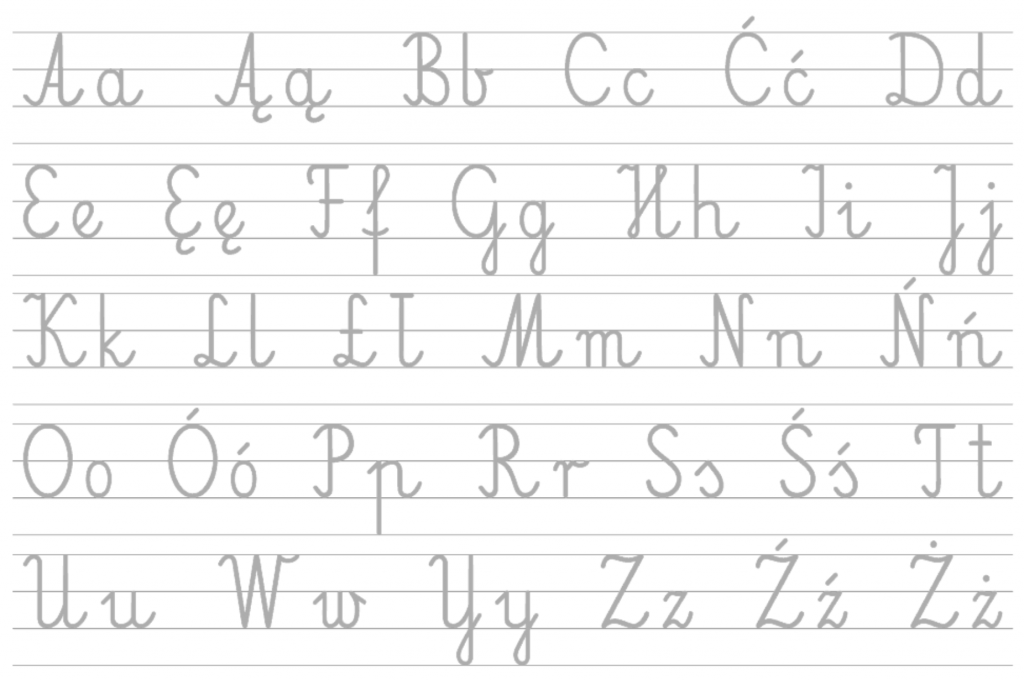 Aa Ąą Bb Cc Ćć Dd
Ee Ęę Ff Gg Hh Ii Jj
Kk Ll Łł Mm Nn Ńń
Oo Óó Pp Rr Ss Śś Tt
Uu Ww Yy Zz Źź Żż